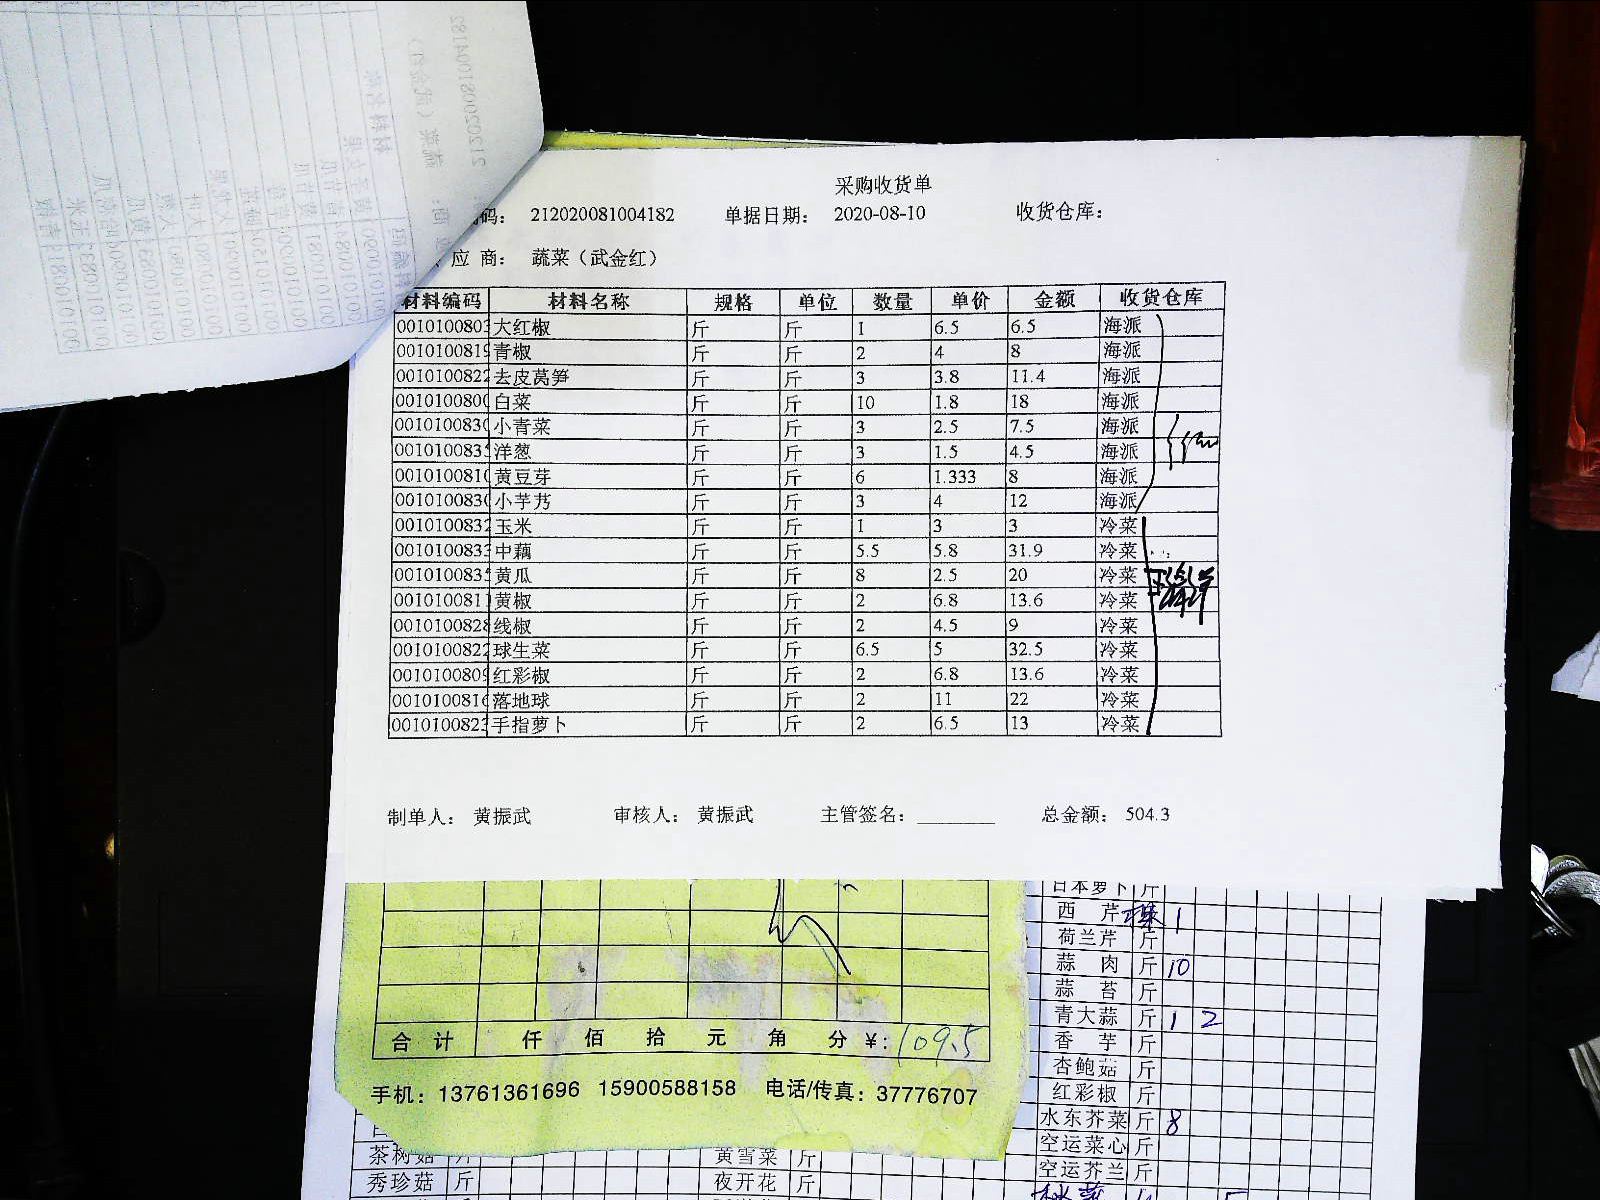 采购收货单
码： 212020081004182 单据日期： 2020-08-10 收货仓库：
应 商： 蔬菜（武金红）
材料编码 材料名称 规格 单位 数量 单价 金额 收货仓库
0010100803 大红椒 斤 斤 1 6.5 6.5 海派
0010100819 青椒 斤 斤 2 4 8 海派
0010100822 去皮莴笋 斤 斤 3 3.8 11.4 海派
0010100800 白菜 斤 斤 10 1.8 18 海派
0010100830 小青菜 斤 斤 3 2.5 7.5 海派
001010083 洋葱 斤 斤 3 1.5 4.5 海派
0010100810 黄豆芽 斤 斤 6 1.333 8 海派
0010100830 小芋艿 斤 斤 3 4 12 海派
0010100832 玉米 斤 斤 1 3 3 冷菜
0010100833 中藕 斤 斤 5.5 5.8 31.9 冷菜
001010083 黄瓜 斤 斤 8 2.5 20 冷菜
0010100811 黄椒 斤 斤 2 6.8 13.6 冷菜
0010100828 线椒 斤 斤 2 4.5 9 冷菜
0010100822 球生菜 斤 斤 6.5 5 32.5 冷菜
0010100809 红彩椒 斤 斤 2 6.8 13.6 冷菜
0010100816 落地球 斤 斤 2 11 22 冷菜
0010100823 手指萝卜 斤 斤 2 6.5 13 冷菜
制单人： 黄振武 审核人： 黄振武 主管签名： 总金额： 504.3
合 计 仟 佰 拾 元 角 分 ¥：109.5
手机：13761361696 15900588158 电话/传真：37776707
日本萝卜 斤
西 芹 棵 1
荷兰芹 斤
蒜 肉 斤 10
蒜 苔 斤
青大蒜 斤 1 2
香 芋 斤
杏鲍菇 斤
红彩椒 斤
水东芥菜 斤 8
空运菜心 斤
空运芥兰 斤
茶树菇 斤 黄雪菜 斤
秀珍菇 斤 夜开花 斤